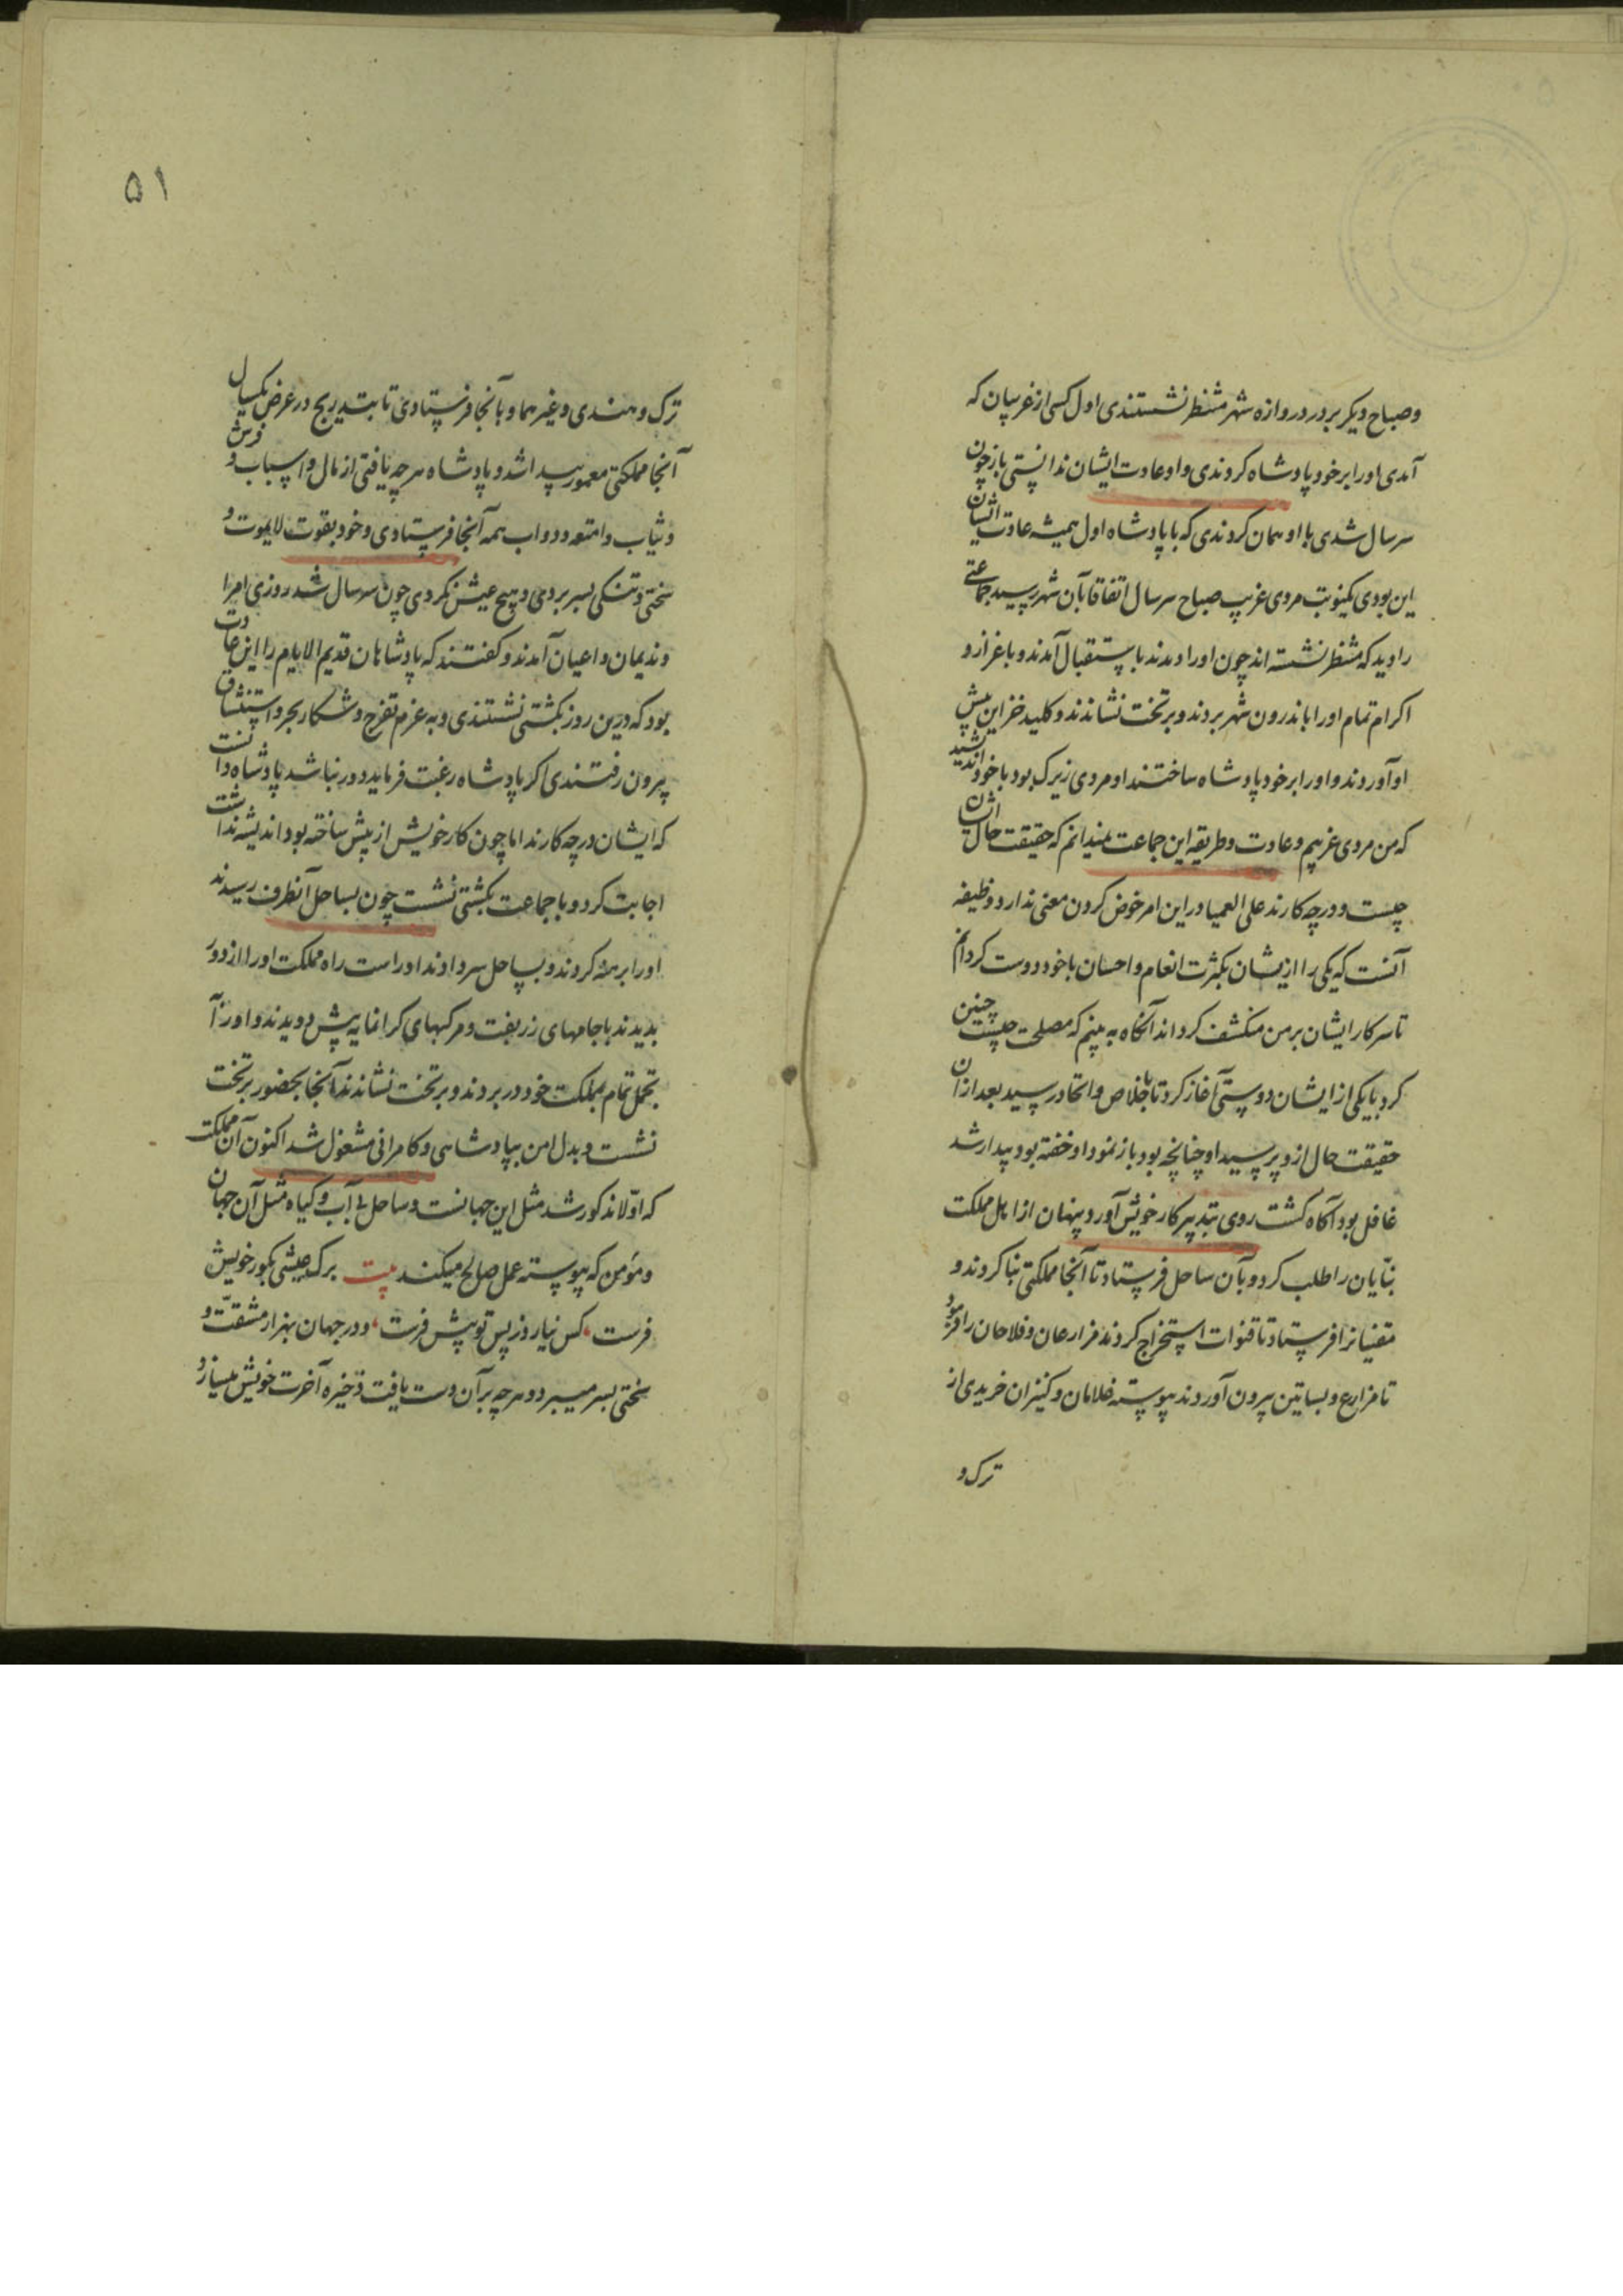 وصباح دیکر بردر دروازه شهر منتظر نشستندی اول کسی از غریبان که
آمدی اورا بر خود پادشاه کردندی و او عادت ایشان ندانستی باز چون
سر سال شدی با او همان کردندی که با پادشاه اول همیشه عادت ایشان
این بودی یکنوبت مردی غریب صباح سر سال اتفاقا بآن شهر رسید جماعتی
را دید که منتظر نشسته اند چون اورا دیدند باستقبال آمدند و باعزاز و
اکرام تمام اورا باندرون شهر بردند و بر تخت نشاندند و کلید خزاین پیش
او آوردند و اورا بر خود پادشاه ساختند او مردی زیرک بود با خود اندیشید
که من مردی غریبم و عادت و طریقه این جماعت نمیدانم که حقیقت حال ایشان
چیست و در چه کارند علی العمیا در این امر خوض کردن معنی ندارد وظیفه
آنست که یکی را ازیشان بکثرت انعام و احسان با خود دوست کردانم
تا سر کار ایشان بر من منکشف کرداند آنکاه به بینم که مصلحت چیست چنین
کرد با یکی از ایشان دوستی آغاز کرد تا باخلاص و اتحاد رسید بعد از آن
حقیقت حال ازو پرسید او چنانچه بود باز نمود او خفته بود بیدار شد
غافل بود آکاه کشت روی بتدبیر کار خویش آورد پنهان از اهل مملکت
بنایان را طلب کرد و بآن ساحل فرستاد تا آنجا مملکتی بنا کردند و
مقنیانرا فرستاد تا قنوات استخراج کردند مزارعان و فلاحان را فرمود
تا مزارع و بساتین بیرون آوردند پیوسته غلامان و کنیزان خریدی از
ترک و
۵۱
ترک و هندی و غیرهما و بآنجا فرستادی تا بتدریج در عرض یکسال
آنجا مملکتی معمور پیدا شد و پادشاه هرچه یافتی از مال و اسباب و فرش
و ثیاب و امتعه و دواب همه آنجا فرستادی و خود بقوت لایموت و
سختی و تنکی بسر بردی و هیچ عیش نکردی چون سر سال شد روزی امرا
و ندیمان و اعیان آمدند و کفتند که پادشاهان قدیم الایام را این عادت
بود که درین روز بکشتی نشستندی و به عزم تفرج و شکار بحر و استنشاق
بیرون رفتندی اکر پادشاه رغبت فرماید دور نباشد پادشاه دانست
که ایشان در چه کارند اما چون کار خویش از پیش ساخته بود اندیشه نداشت
اجابت کرد و با جماعت بکشتی نشست چون بساحل آنطرف رسیدند
اورا برهنه کردند و بساحل سر دادند او راست راه مملکت اورا از دور
بدیدند با جامهای زربفت و مرکبهای کرانمایه پیش دویدند و اورا آ
تجمل تمام بمملکت خود در بردند و بر تخت نشاندند آنجا بحضور بر تخت
نشست و بدل امن بپادشاهی و کامرانی مشغول شد اکنون آن مملکت
که اولا مذکور شد مثل این جهانست و ساحل بی آب و کیاه مثل آن جهان
و مؤمن که پیوسته عمل صالح میکند بیت برک عیشی بکور خویش
فرست کس نیارد ز پس تو پیش فرست و در جهان بهزار مشقت و
سختی بسر میبرد و هرچه بر آن دست یافت ذخیره آخرت خویش میسازد